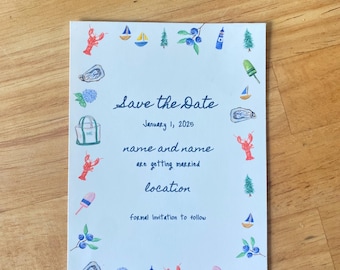 Save the Date
January 1, 2025
name and name
are getting married
location
formal invitation to follow